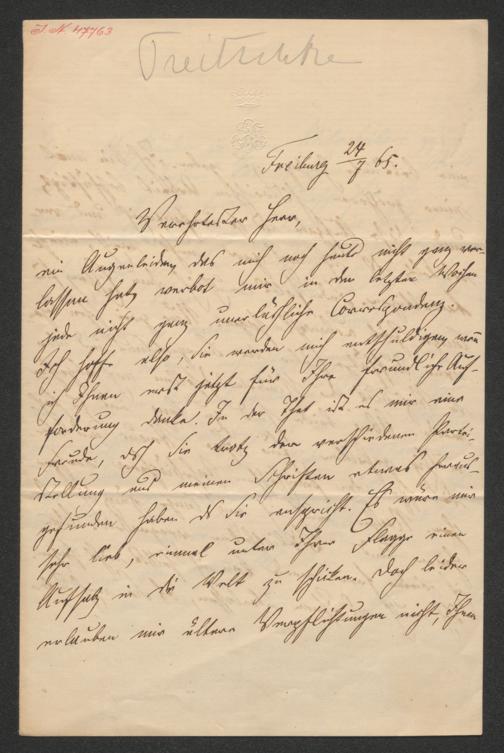 J. N. 47763
Treitschke
Freiburg 24/7 65.
Verehrtester Herr,
ein Augenleiden das mich noch heute nicht ganz ver-
lassen hat, verbot mir in den letzten Wochen
jede nicht ganz unerläßliche Correspondenz.
Ich hoffe also Sie werden mich entschuldigen wenn
ich Ihnen erst jetzt für Ihre freundliche Auf-
forderung danke. In der That ist es mir eine
Freude, daß Sie trotz der verschiedenen Partei-
stellung aus meinen Schriften etwas heraus-
gefunden haben das Sie anspricht. Es wäre mir
sehr lieb, einmal unter Ihrer Flagge einen
Aufsatz in die Welt zu schicken. Doch leider
erlauben mir ältere Verpflichtungen nicht, Ihnen